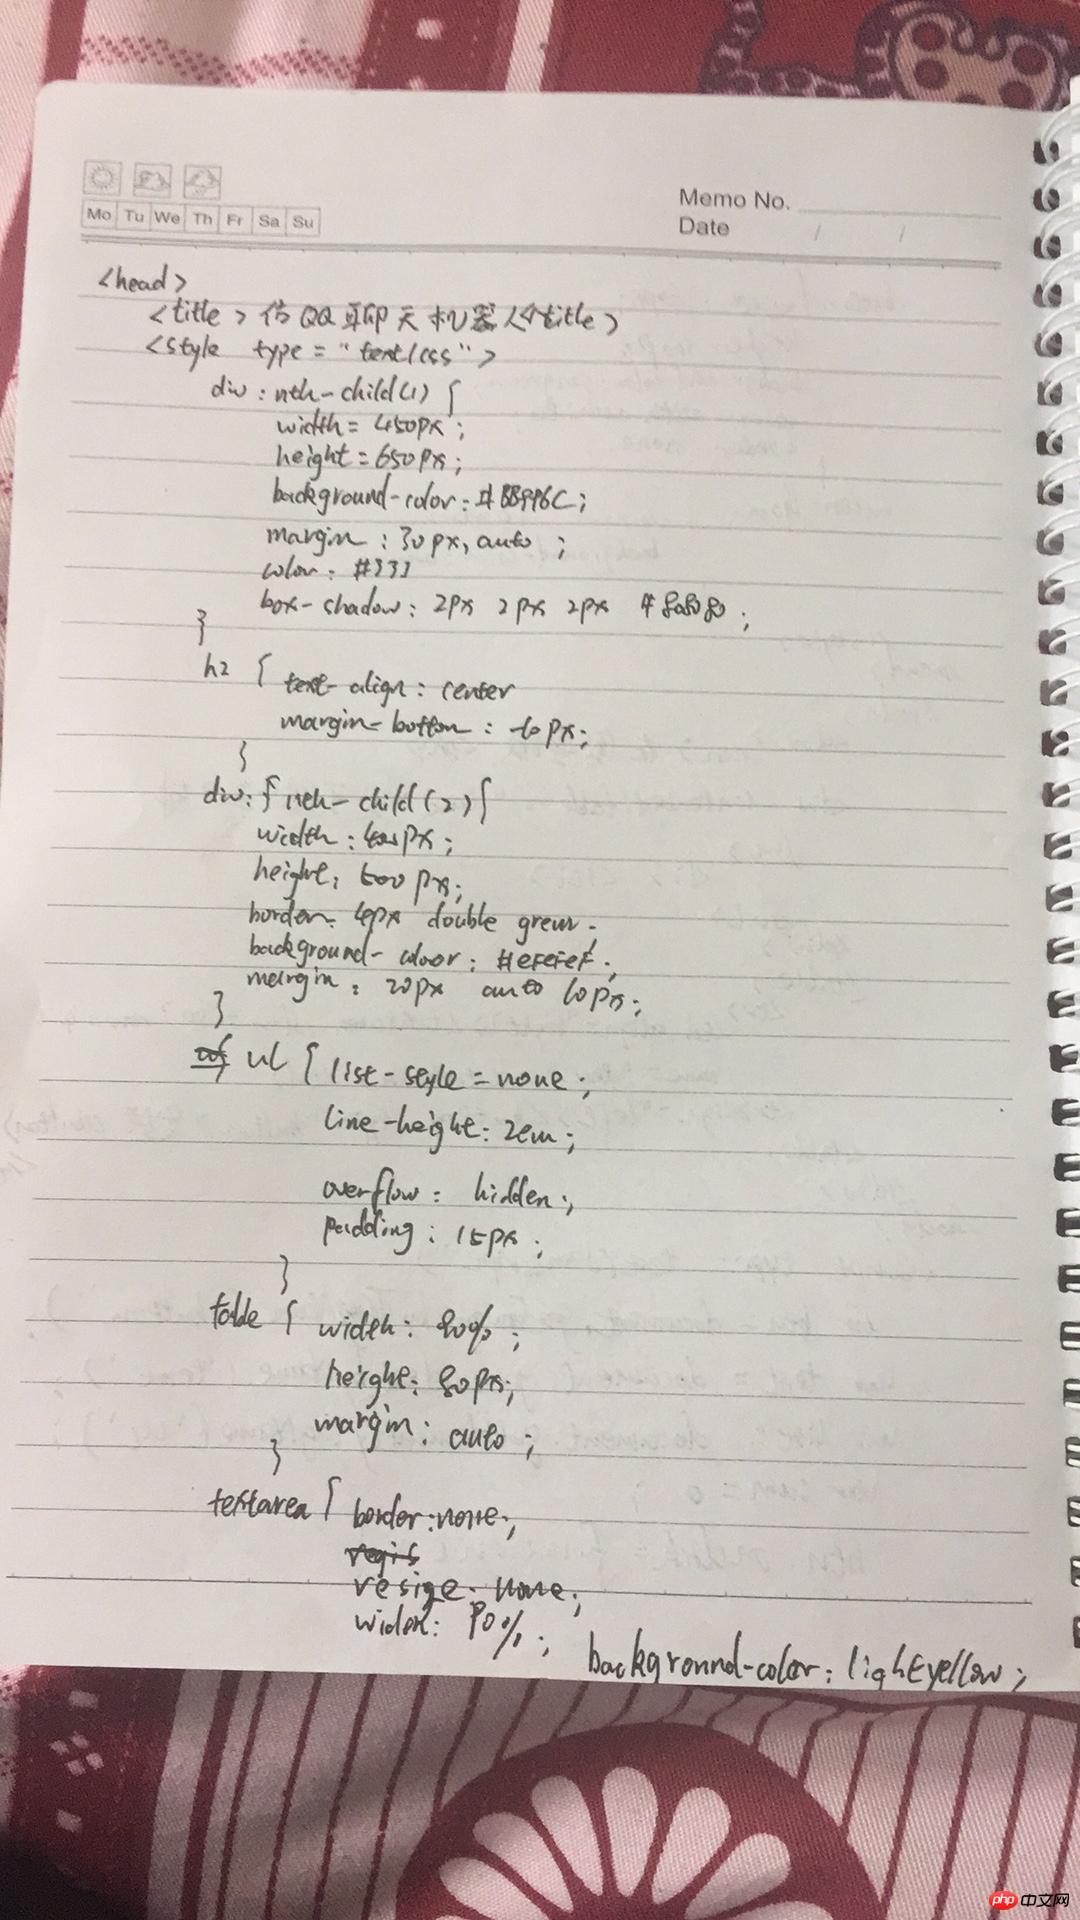 Mo Tu We Th Fr Sa Su
Memo No.
Date / /
<head>
<title>仿QQ聊天机器人</title>
<style type="text/css">
div:nth-child(1) {
width=450px;
height=650px;
background-color:#BB996C;
margin:30px, auto ;
color:#333
box-shadow: 2px 2px 2px #808080;
}
h2 { text-align: center
margin-bottom: -10px;
}
div:{ nth-child(2){
width:400px;
height:500px;
border: 4px double green.
background-color: #efefef;
margin: 20px auto 10px;
}
ul { list-style=none;
line-height: 2em;
overflow: hidden;
padding: 15px;
}
table { width: 80%;
height: 80px;
margin: auto;
}
textarea { border:none;
resize: none;
width: 90%; background-color: lightyellow;
php 中文网